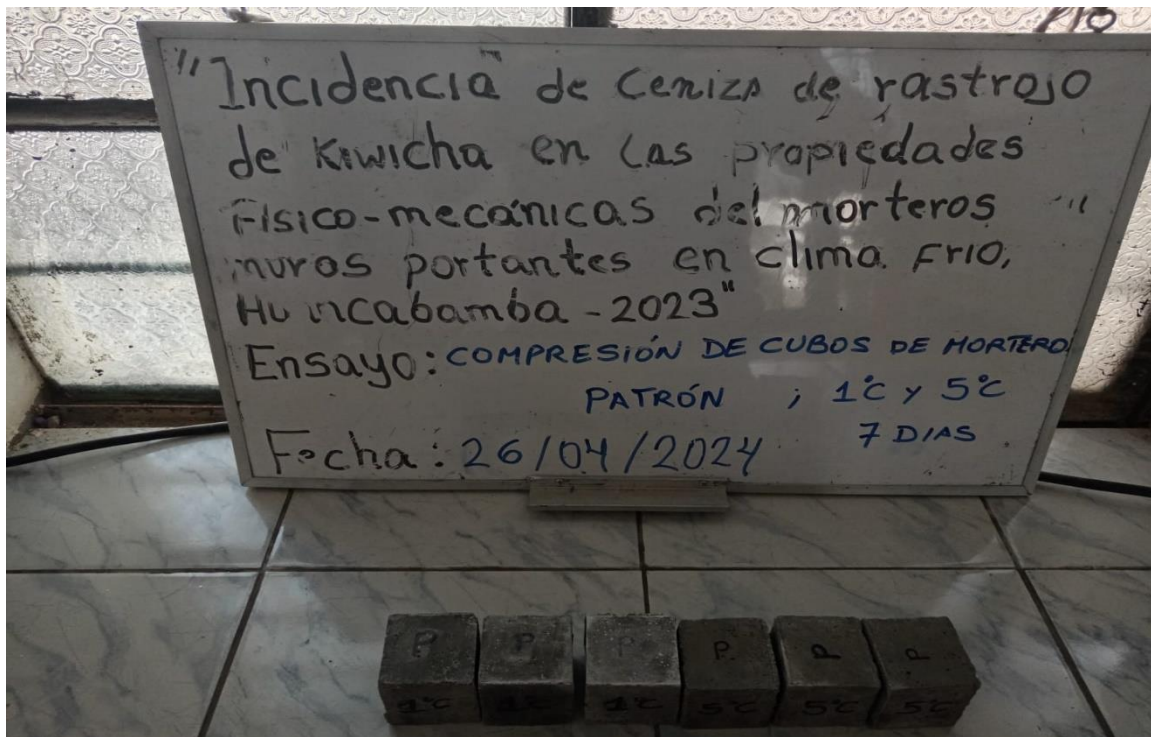 "Incidencia de Ceniza de rastrojo
de Kiwicha en las propiedades
Físico-mecánicas del morteros
muros portantes en clima Frio,
Huancabamba - 2023"
Ensayo: COMPRESIÓN DE CUBOS DE MORTERO
PATRÓN ; 1°C Y 5°C
7 DIAS
Fecha: 26/04/2024
P P P P. P P
1°C 1°C 1°C 5°C 5°C 5°C